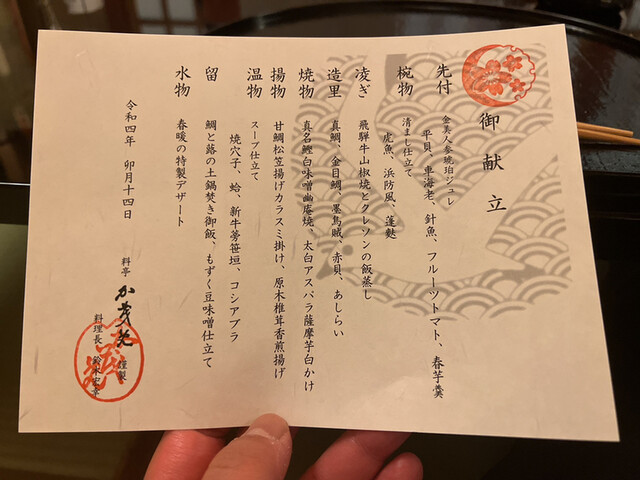 御献立
先付
金美人参琥珀ジュレ
平貝、車海老、針魚、フルーツトマト、春芋羹
椀物
清まし仕立て
虎魚、浜防風、蓬麩
凌ぎ
飛騨牛山椒焼とクレソンの飯蒸し
造里
真鯛、金目鯛、墨烏賊、赤貝、あしらい
焼物
真名鰹白味噌幽庵焼、太白アスパラ薩摩芋白かけ
揚物
甘鯛松笠揚げカラスミ掛け、原木椎茸香煎揚げ
温物
スープ仕立て
焼穴子、蛤、新牛蒡笹垣、コシアブラ
留
鯛と蕗の土鍋焚き御飯、もずく豆味噌仕立て
水物
春暖の特製デザート
令和四年 卯月十四日
料亭 か茂免 謹製
料理長 鈴木宏幸